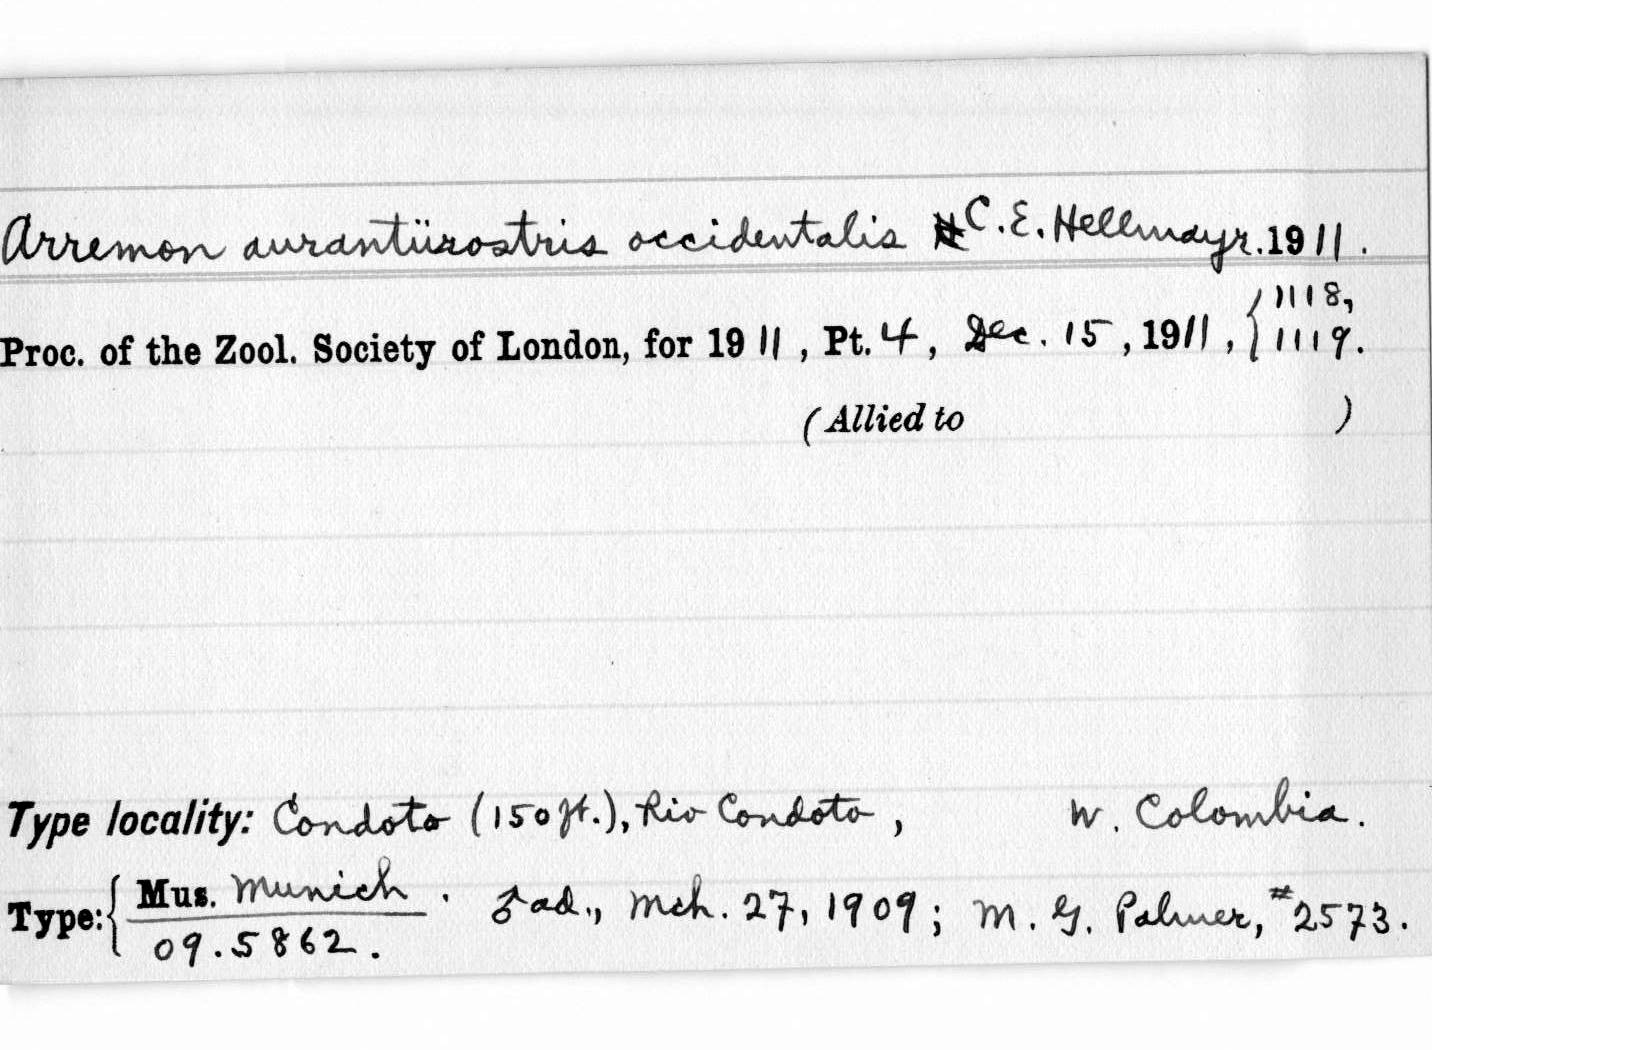 Arremon aurantiirostris occidentalis C. E. Hellmayr. 1911.
Proc. of the Zool. Society of London, for 1911, Pt. 4, Dec. 15, 1911, { 1118, 1119.
(Allied to )
Type locality: Condoto (150 ft.), Rio Condoto, W. Colombia.
Type: { Mus. Munich. ♂ ad., Mch. 27, 1909; M. G. Palmer, #2573.
09.5862.